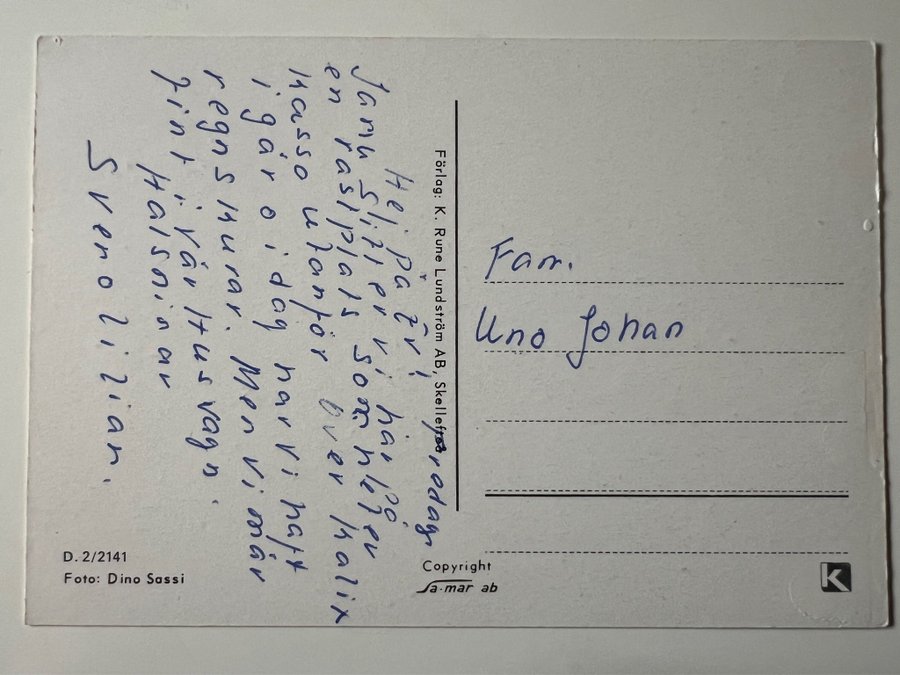 Fredag
Hej på Er!
Ja nu Sitter vi här på
en rastplats som heter
utanför Över kalix
igår o idag har vi haft
regnskurar. Men vi mår
fint i vår Husvagn.
Halsninar
Sven o Lilian.
Förlag: K. Rune Lundström AB, Skellefteå
Fam.
Uno Johan
D. 2/2141
Foto: Dino Sassi
Copyright
Sa-mar ab
K